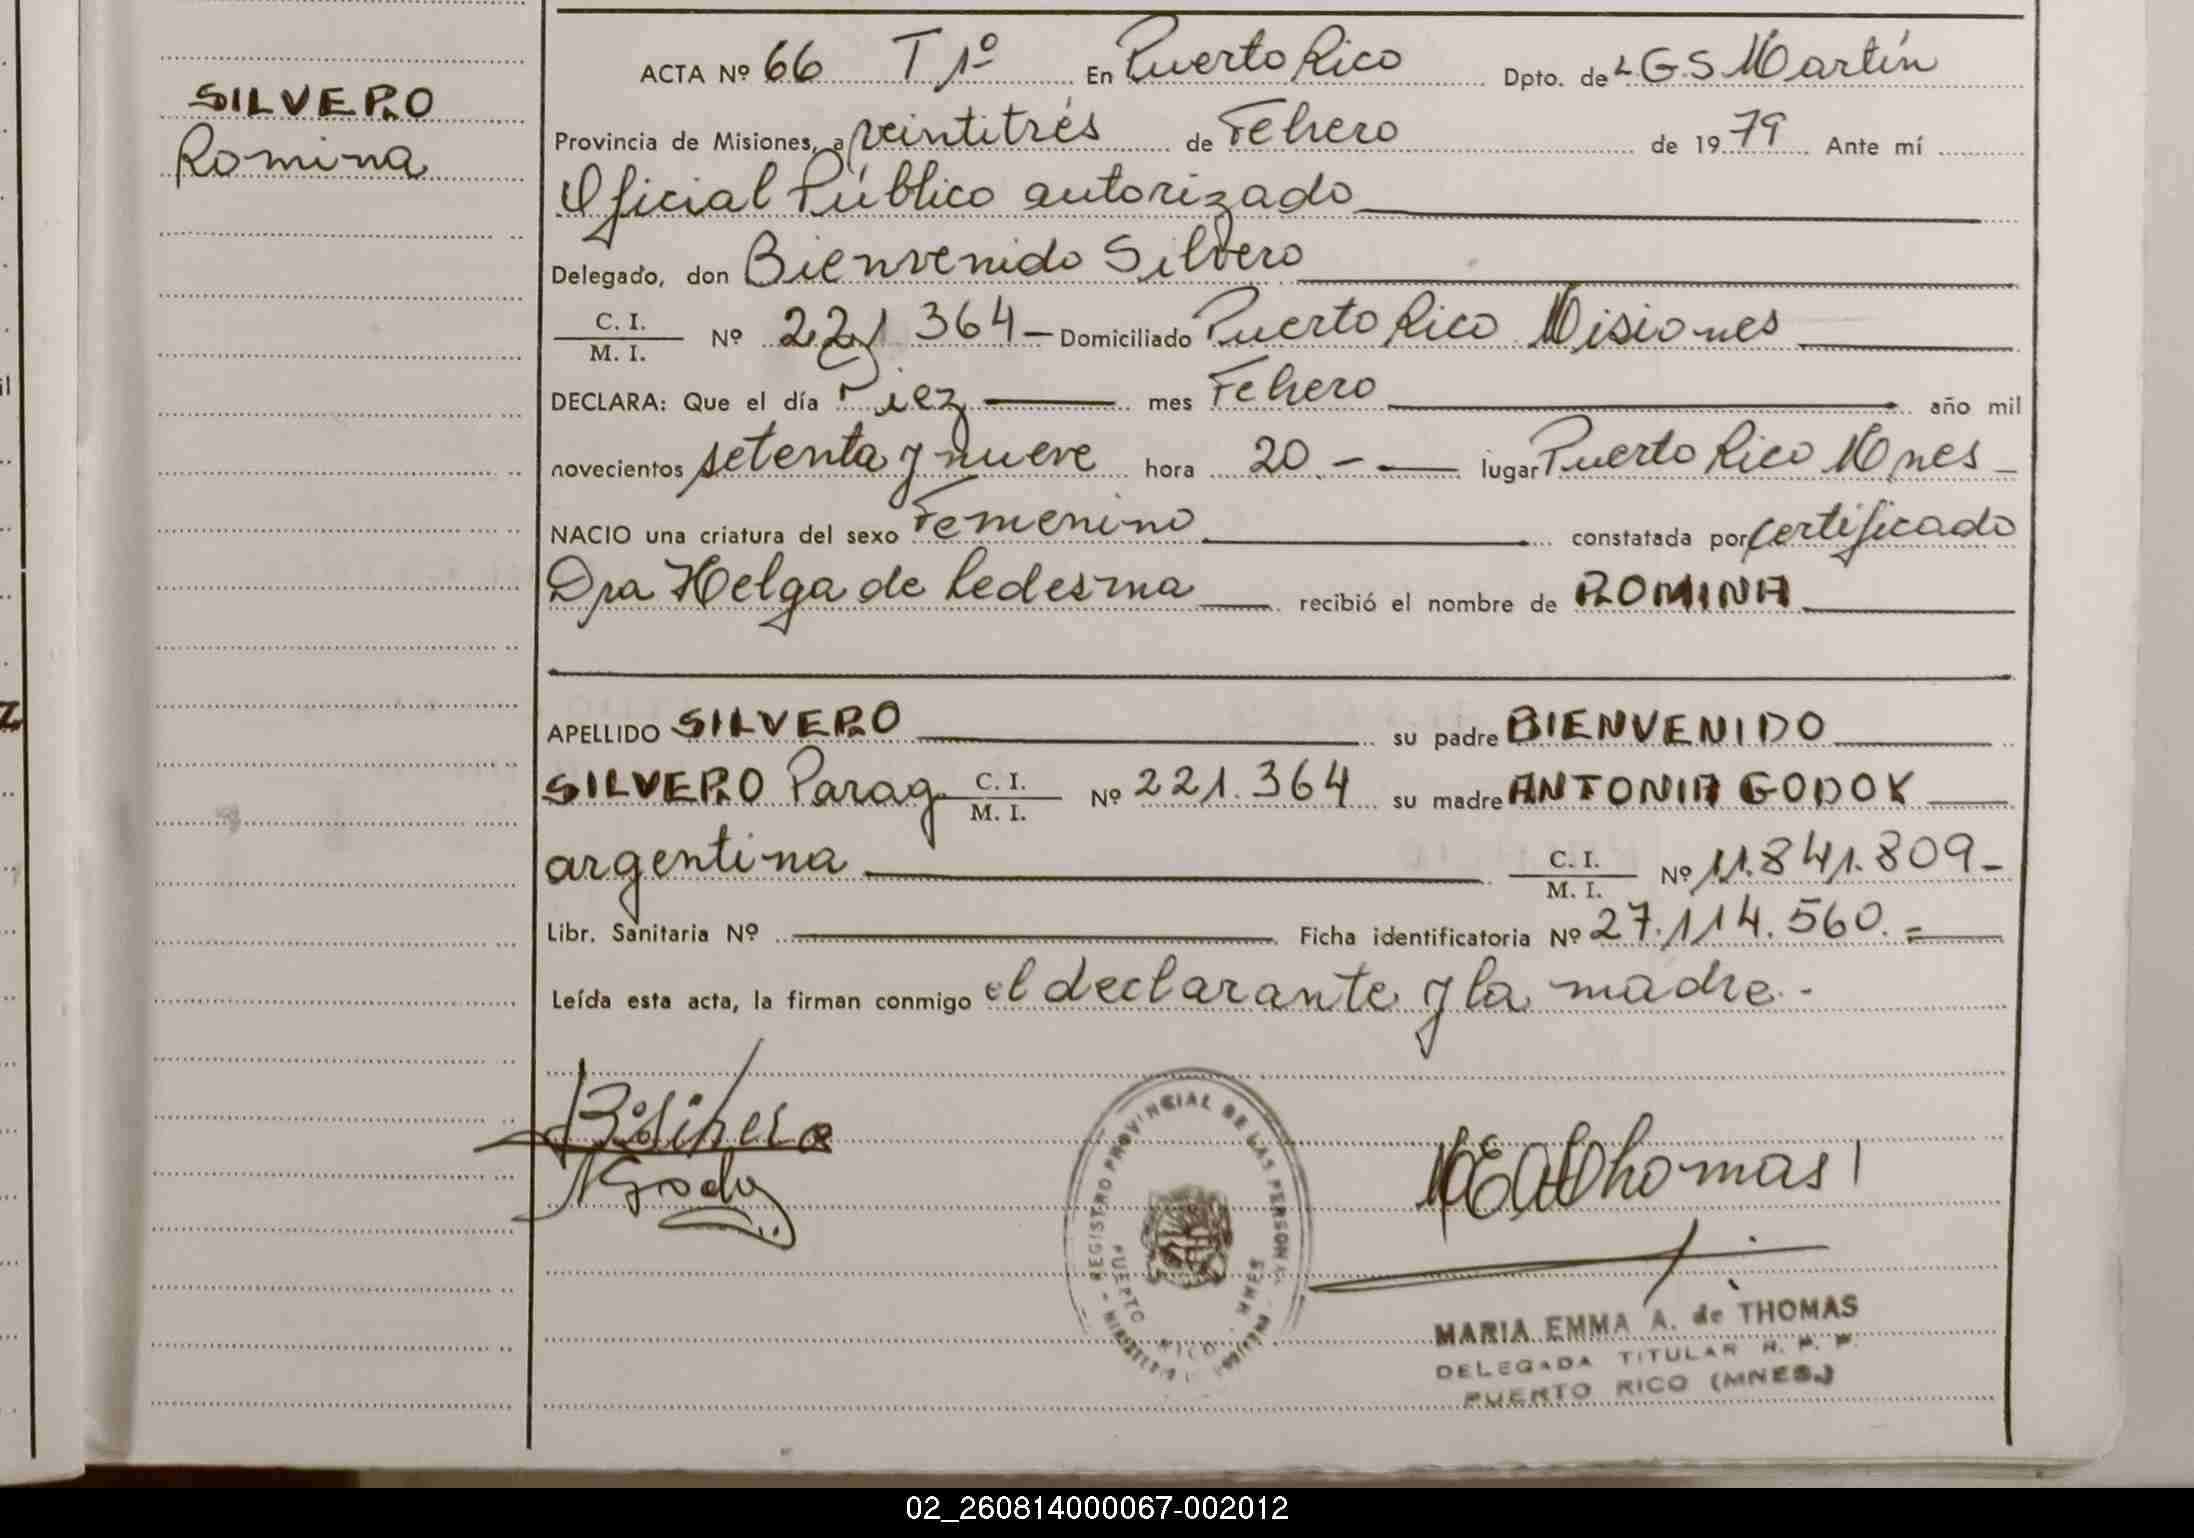 SILVERO
Romina
ACTA Nº 66 T 1º En Puerto Rico Dpto. de L.G.S Martín
Provincia de Misiones, a veintitrés de Febrero de 1979 Ante mí
Oficial Público autorizado
Delegado, don Bienvenido Silvero
C. I. / M. I. Nº 221 364 – Domiciliado Puerto Rico Misiones
DECLARA: Que el día Diez mes Febrero año mil
novecientos setenta y nueve hora 20 – lugar Puerto Rico Mnes –
NACIO una criatura del sexo Femenino constatada por certificado
Dra Helga de Ledesma recibió el nombre de ROMINA
APELLIDO SILVERO su padre BIENVENIDO
SILVERO Parag. C. I. / M. I. Nº 221.364 su madre ANTONIA GODOY
argentina C. I. / M. I. Nº 11.841.809 –
Libr. Sanitaria Nº Ficha identificatoria Nº 27.114.560. =
Leída esta acta, la firman conmigo el declarante y la madre. -
B. Silvero
A Godoy
MEA de Thomas
REGISTRO PROVINCIAL DE LAS PERSONAS
PUERTO RICO MNES
MARIA EMMA A. de THOMAS
DELEGADA TITULAR R. P. P.
PUERTO RICO (MNES.)
02_260814000067-002012